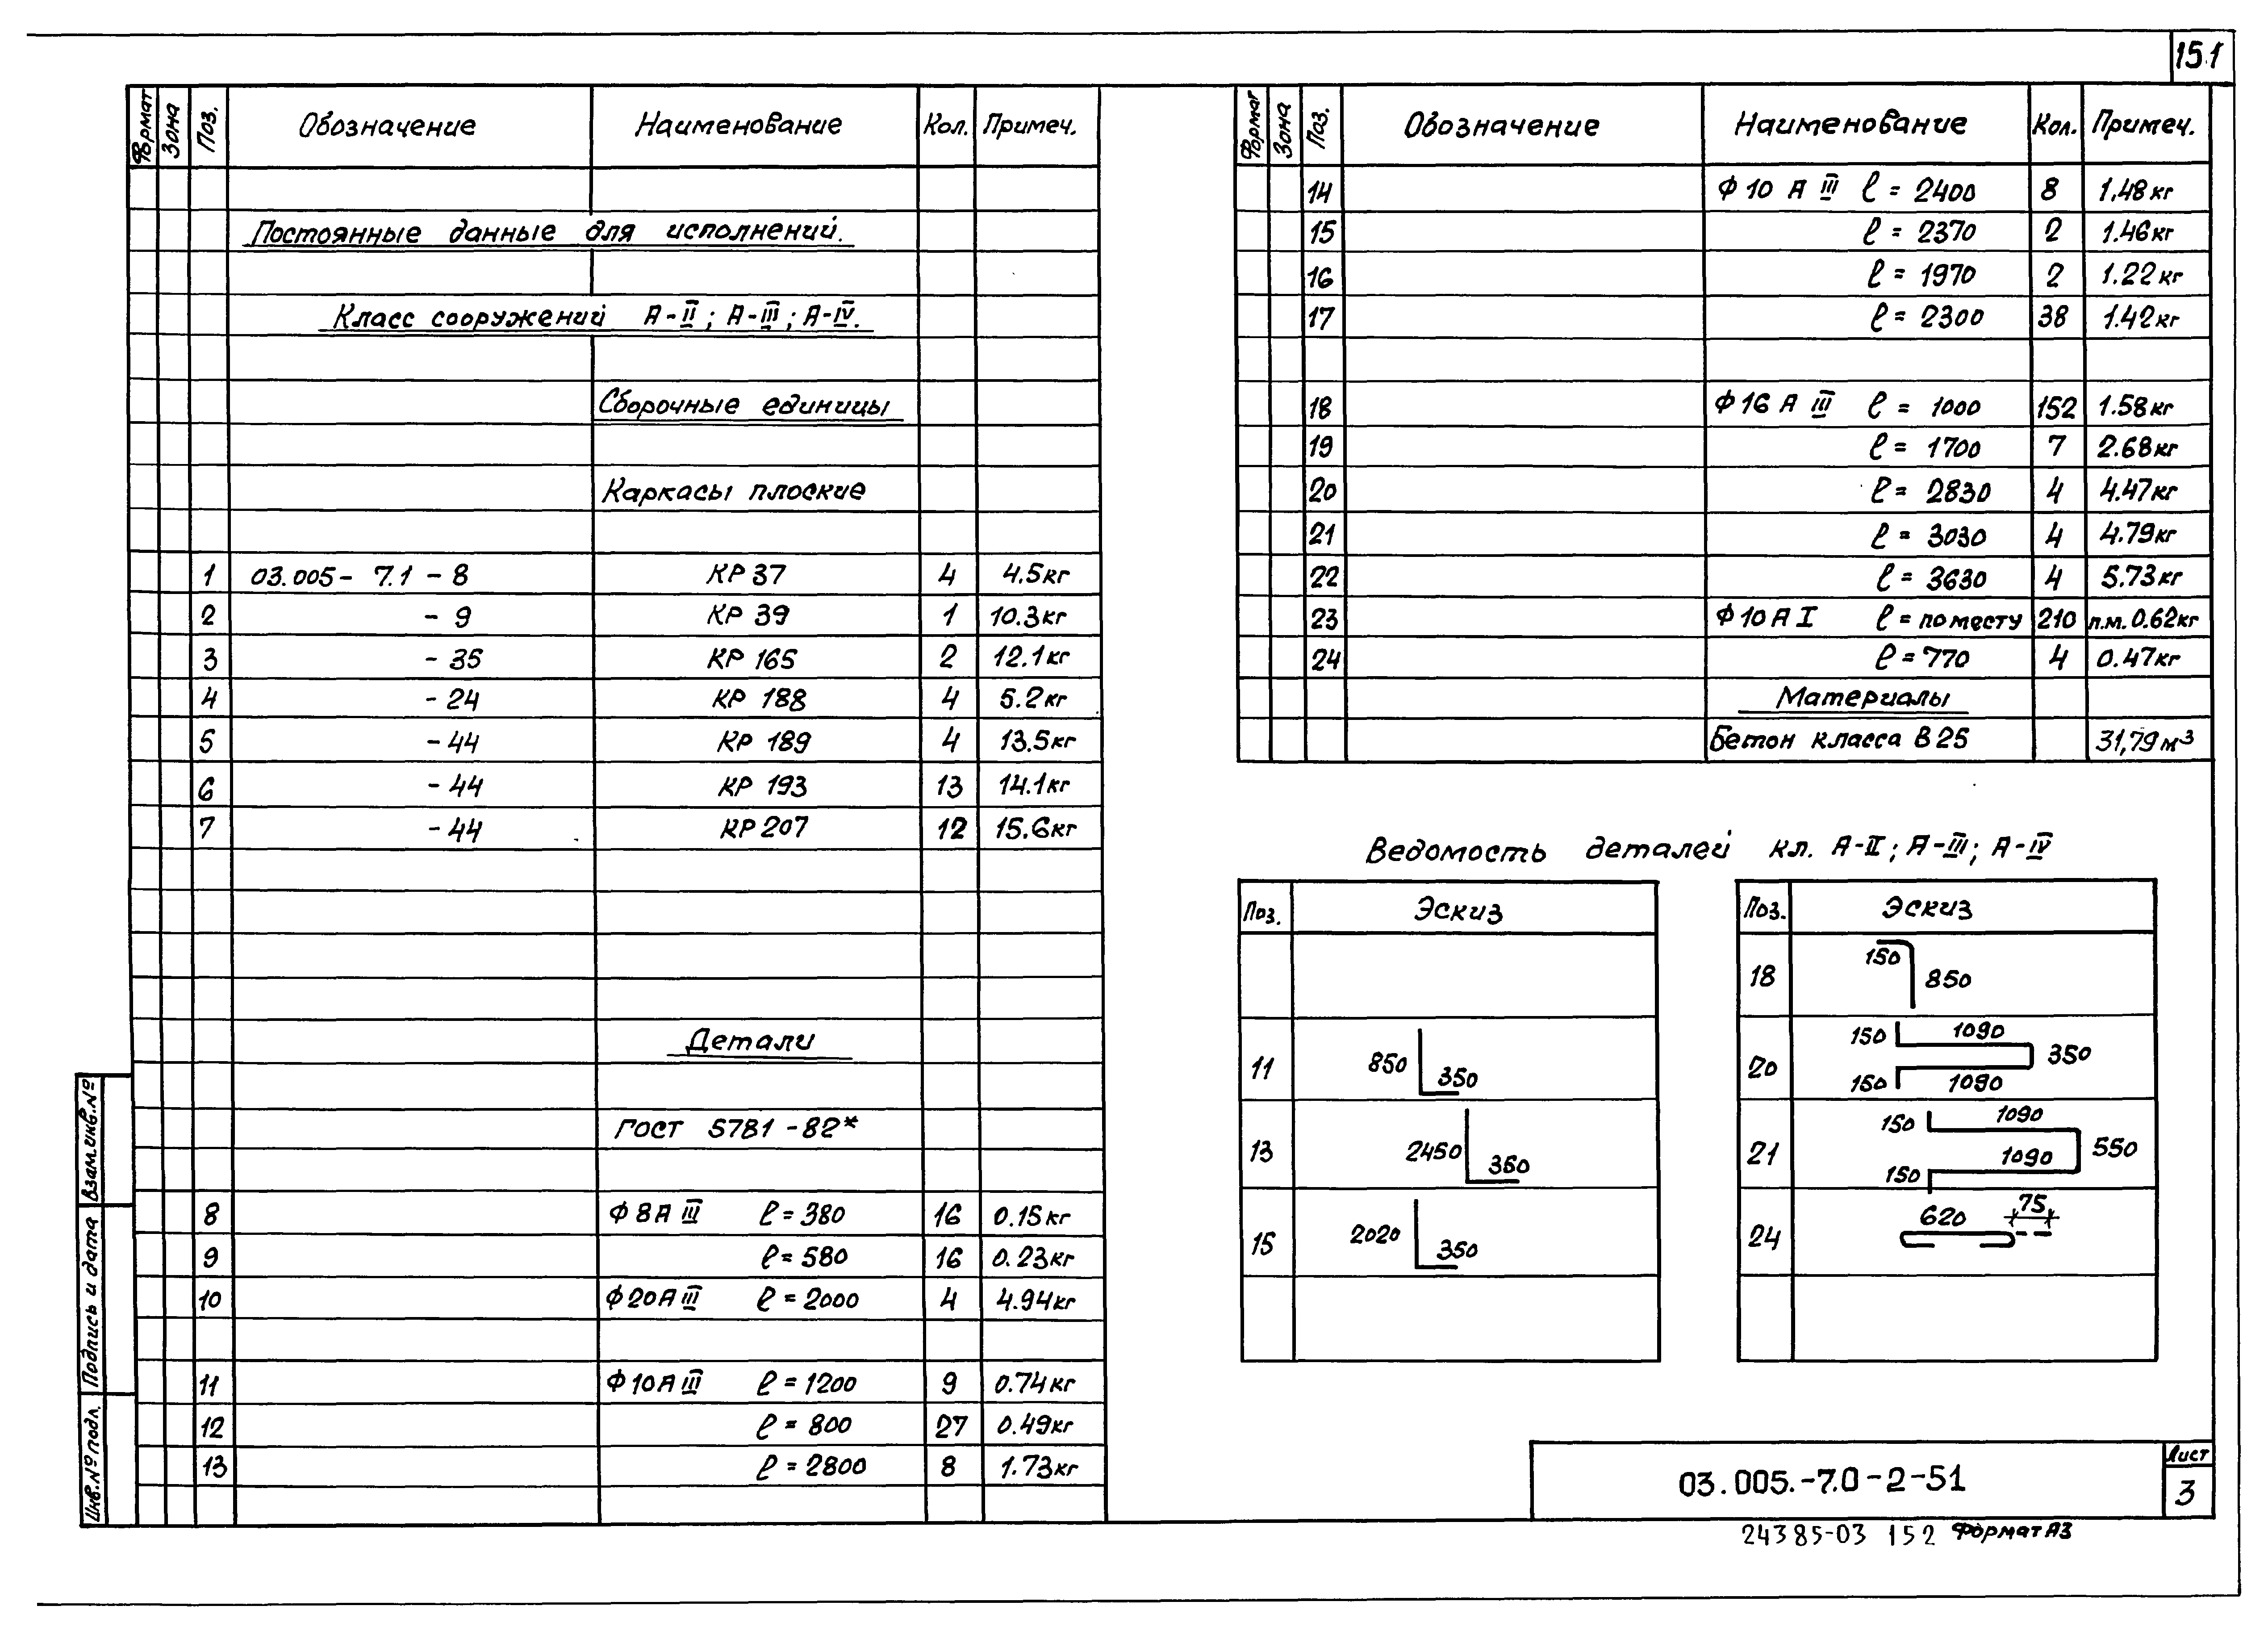 151
Формат Зона Поз. Обозначение Наименование Кол. Примеч.
Постоянные данные для исполнений.
Класс сооружений А-II; А-III; А-IV.
Сборочные единицы
Каркасы плоские
1 03.005- 7.1 - 8 КР 37 4 4.5кг
2 - 9 КР 39 1 10.3кг
3 - 35 КР 165 2 12.1кг
4 - 24 КР 188 4 5.2кг
5 - 44 КР 189 4 13.5кг
6 - 44 КР 193 13 14.1кг
7 - 44 КР 207 12 15.6кг
Детали
ГОСТ 5781-82*
8 Ф8АIII ℓ=380 16 0.15кг
9 ℓ=580 16 0.23кг
10 Ф20АIII ℓ=2000 4 4.94кг
11 Ф10АIII ℓ=1200 9 0.74кг
12 ℓ=800 27 0.49кг
13 ℓ=2800 8 1.73кг
Формат Зона Поз. Обозначение Наименование Кол. Примеч.
14 Ф10 А III ℓ=2400 8 1,48кг
15 ℓ=2370 2 1.46кг
16 ℓ=1970 2 1.22кг
17 ℓ=2300 38 1.42кг
18 Ф16 А III ℓ=1000 152 1.58кг
19 ℓ=1700 7 2.68кг
20 ℓ=2830 4 4.47кг
21 ℓ=3030 4 4.79кг
22 ℓ=3630 4 5.73кг
23 Ф10АI ℓ=по месту 210 п.м. 0.62кг
24 ℓ=770 4 0.47кг
Материалы
Бетон класса В25 31,79м³
Ведомость деталей кл. А-II; А-III; А-IV
Поз. Эскиз
11 850 350
13 2450 350
15 2020 350
Поз. Эскиз
18 150 850
20 150 1090 350 150 1090
21 150 1090 550 1090 150
24 620 75
Взам.инв.№
Подпись и дата
Инв.№ подл.
03.005.-7.0-2-51
Лист
3
24385-03 152 Формат А3